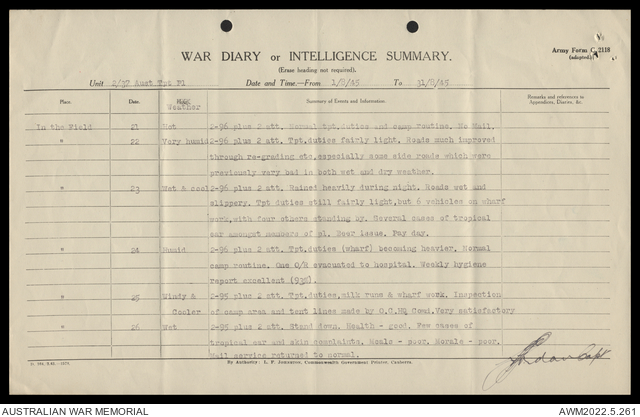 Army Form C.2118
(adapted)
WAR DIARY or INTELLIGENCE SUMMARY.
(Erase heading not required).
Unit 2/37 Aust Tpt Pl Date and Time.—From 1/8/45 To 31/8/45
Place. Date. Hour. Summary of Events and Information Remarks and references to
Weather Appendices, Diaries, &c.
In the Field 21 Hot 2-96 plus 2 att. Normal tpt.duties and camp routine. No Mail.
" 22 Very humid 2-96 plus 2 att. Tpt.duties fairly light. Roads much improved
through re-grading etc.especially some side roads which were
previously vary bad in both wet and dry weather.
" 23 Wet & cool 2-96 plus 2 att. Rained heavily during night. Roads wet and
slippery. Tpt duties still fairly light,but 6 vehicles on wharf
work,with four others standing by. Several cases of tropical
ear amongst members of pl. Beer issue. Pay day.
" 24 Humid 2-96 plus 2 att. Tpt.duties (wharf) becoming heavier. Normal
camp routine. One O/R evacuated to hospital. Weekly hygiene
report excellent (93%).
" 25 Windy & 2-95 plus 2 att. Tpt.duties,milk runs & wharf work. Inspection
Cooler of camp area and tent lines made by O.C.HQ Comd.Very satisfactory
" 26 Wet 2-95 plus 2 att. Stand down. Health - good. Few cases of
tropical ear and skin complaints. Meals - poor. Morale - poor.
Mail service returned to normal.
Capt
By Authority: L. F. Johnston, Commonwealth Government Printer, Canberra.
AUSTRALIAN WAR MEMORIAL AWM2022.5.261